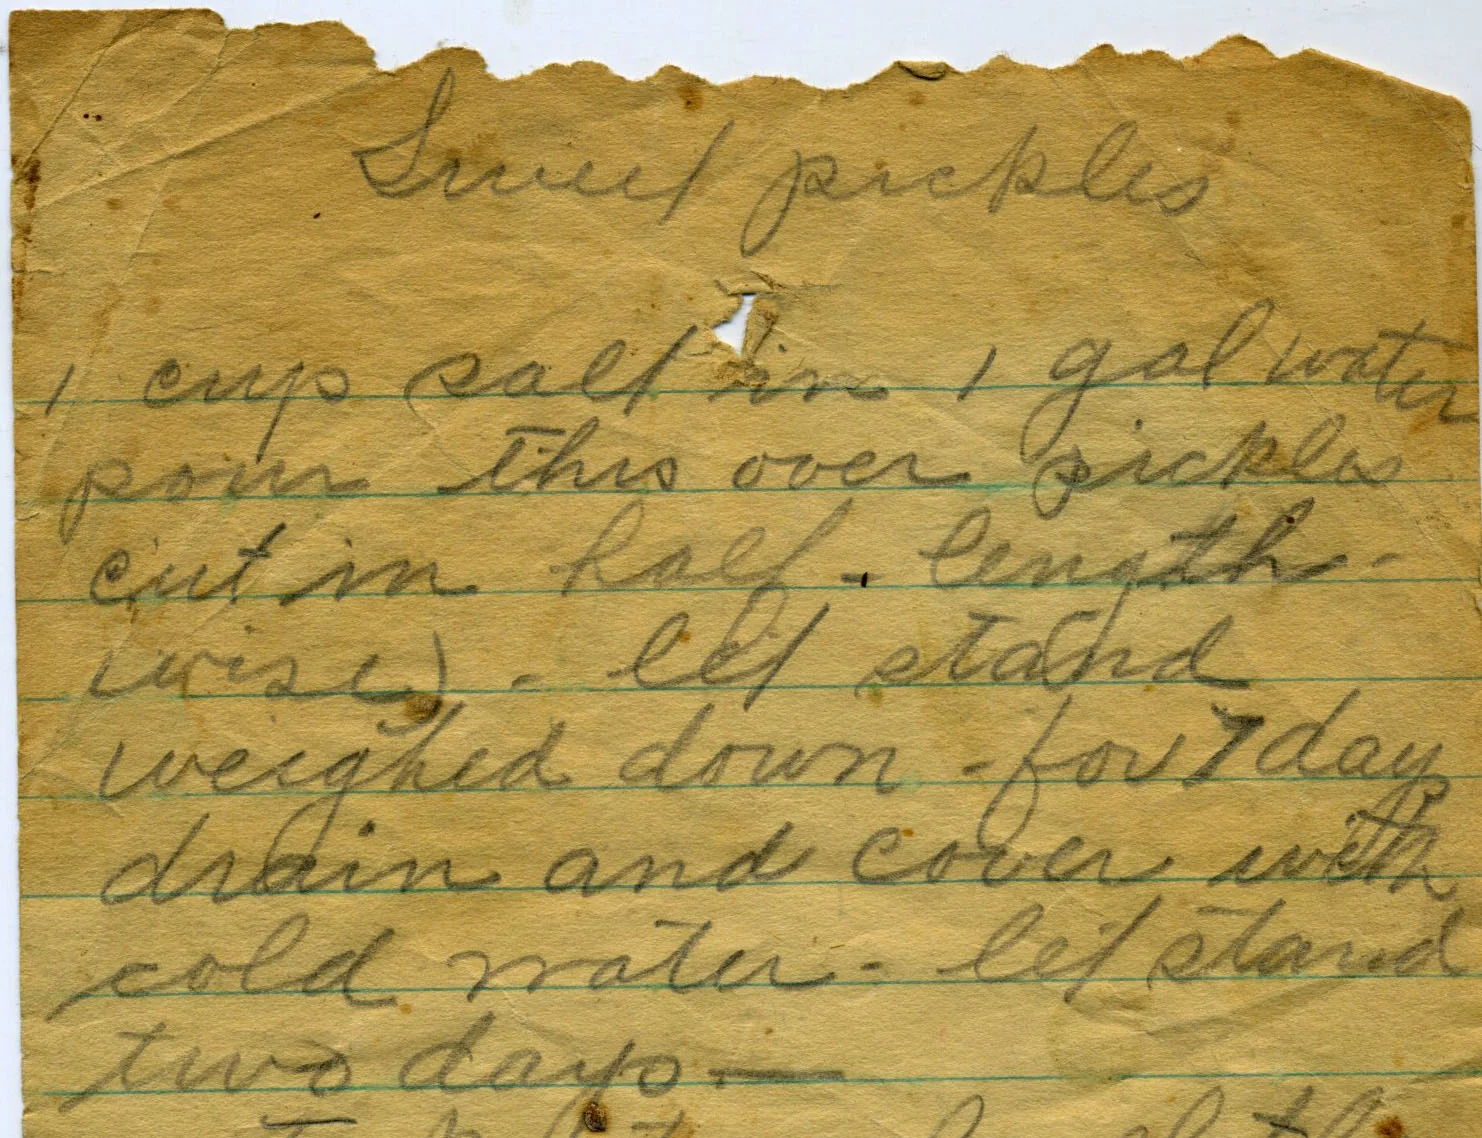 Sweet pickles
1 cup salt in 1 gal water
pour this over pickles
cut in half - length-
wise) - let stand
weighed down - for 7 days
drain and cover with
cold water - let stand
two days —